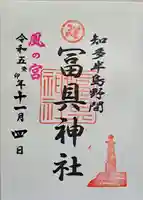 知多半島野間
冨具神社
風の宮
令和五癸卯年十一月四日